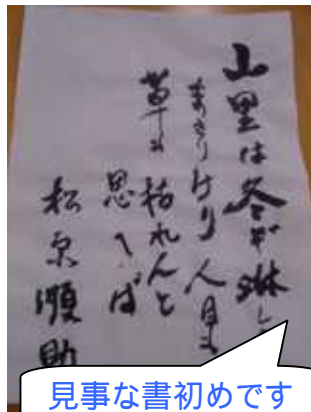 山里は冬ぞ淋し
まさりけり 人目も
草も枯れんと
思へば
松 助
見事な書初めです